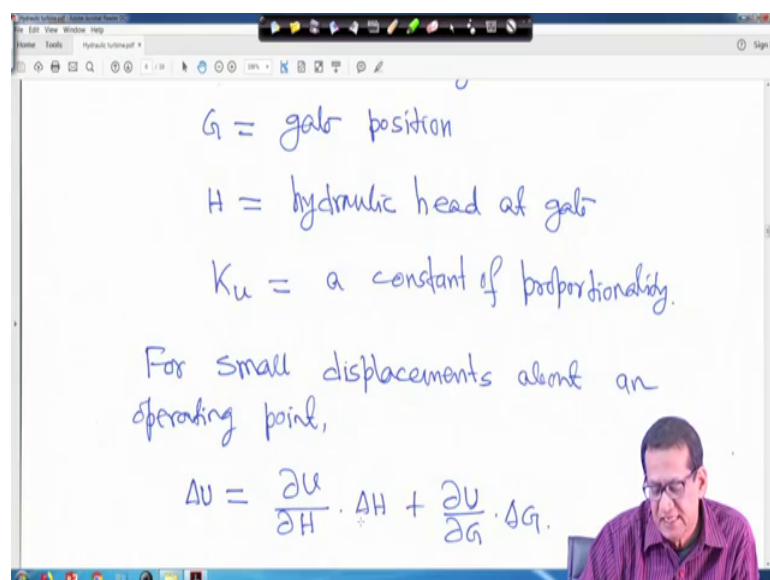 Hydraulic turbine.pdf - Adobe Acrobat Reader DC
File Edit View Window Help
Home Tools Hydraulic turbine.pdf × Sign
G = gate position
H = hydraulic head at gate
Ku = a constant of proportionality.
For small displacements about an
operating point,
ΔU = ∂U/∂H · ΔH + ∂U/∂G · ΔG.